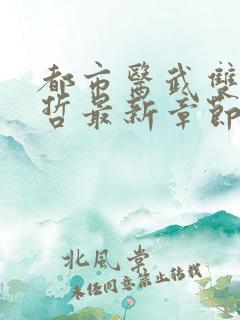 都市醫武雙
哲最新章節
北風掌
未经同意禁止转载